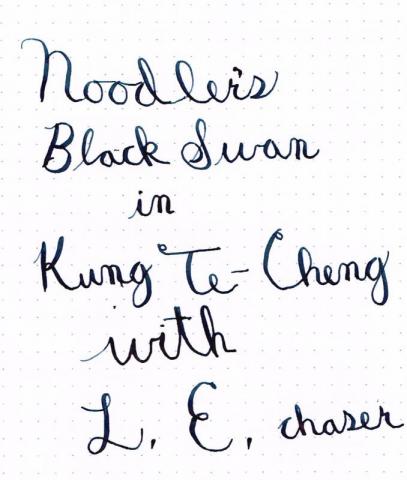 Noodler's
Black Swan
in
Kung Te-Cheng
with
L. E. chaser